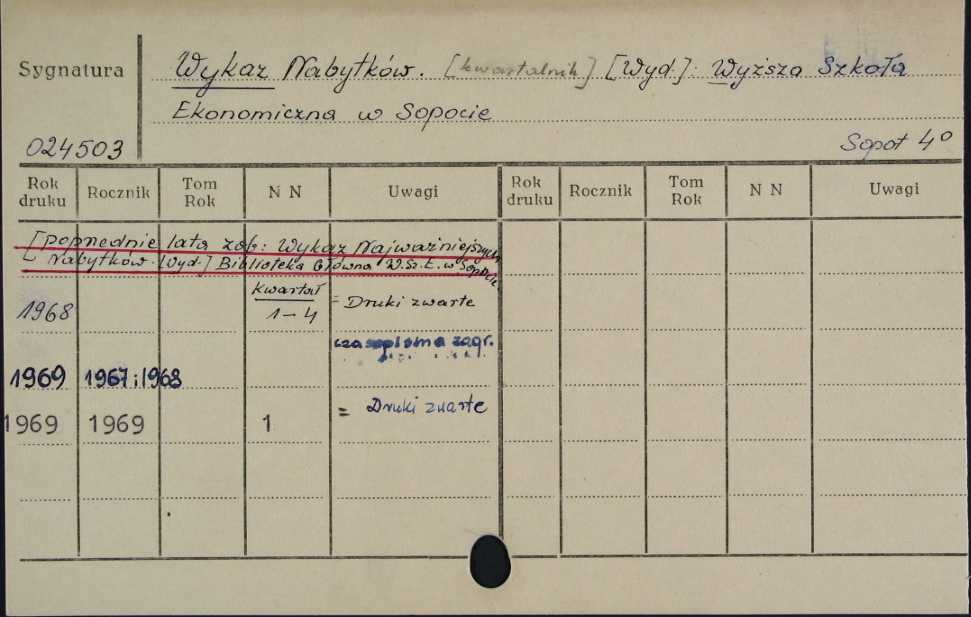 Sygnatura
Wykaz Nabytków. [kwartalnik] [Wyd.]: Wyższa Szkoła
Ekonomiczna w Sopocie
024503
Sopot 4°
Rok druku Rocznik Tom Rok N N Uwagi Rok druku Rocznik Tom Rok N N Uwagi
[poprzednie lata zob: Wykaz Najważniejszych
Nabytków. [Wyd.] Biblioteka Główna W.Sz.E. w Sopocie
1968 kwartał 1-4 = Druki zwarte
czasopisma zagr.
1969 1967 i 1968
1969 1969 1 = Druki zwarte